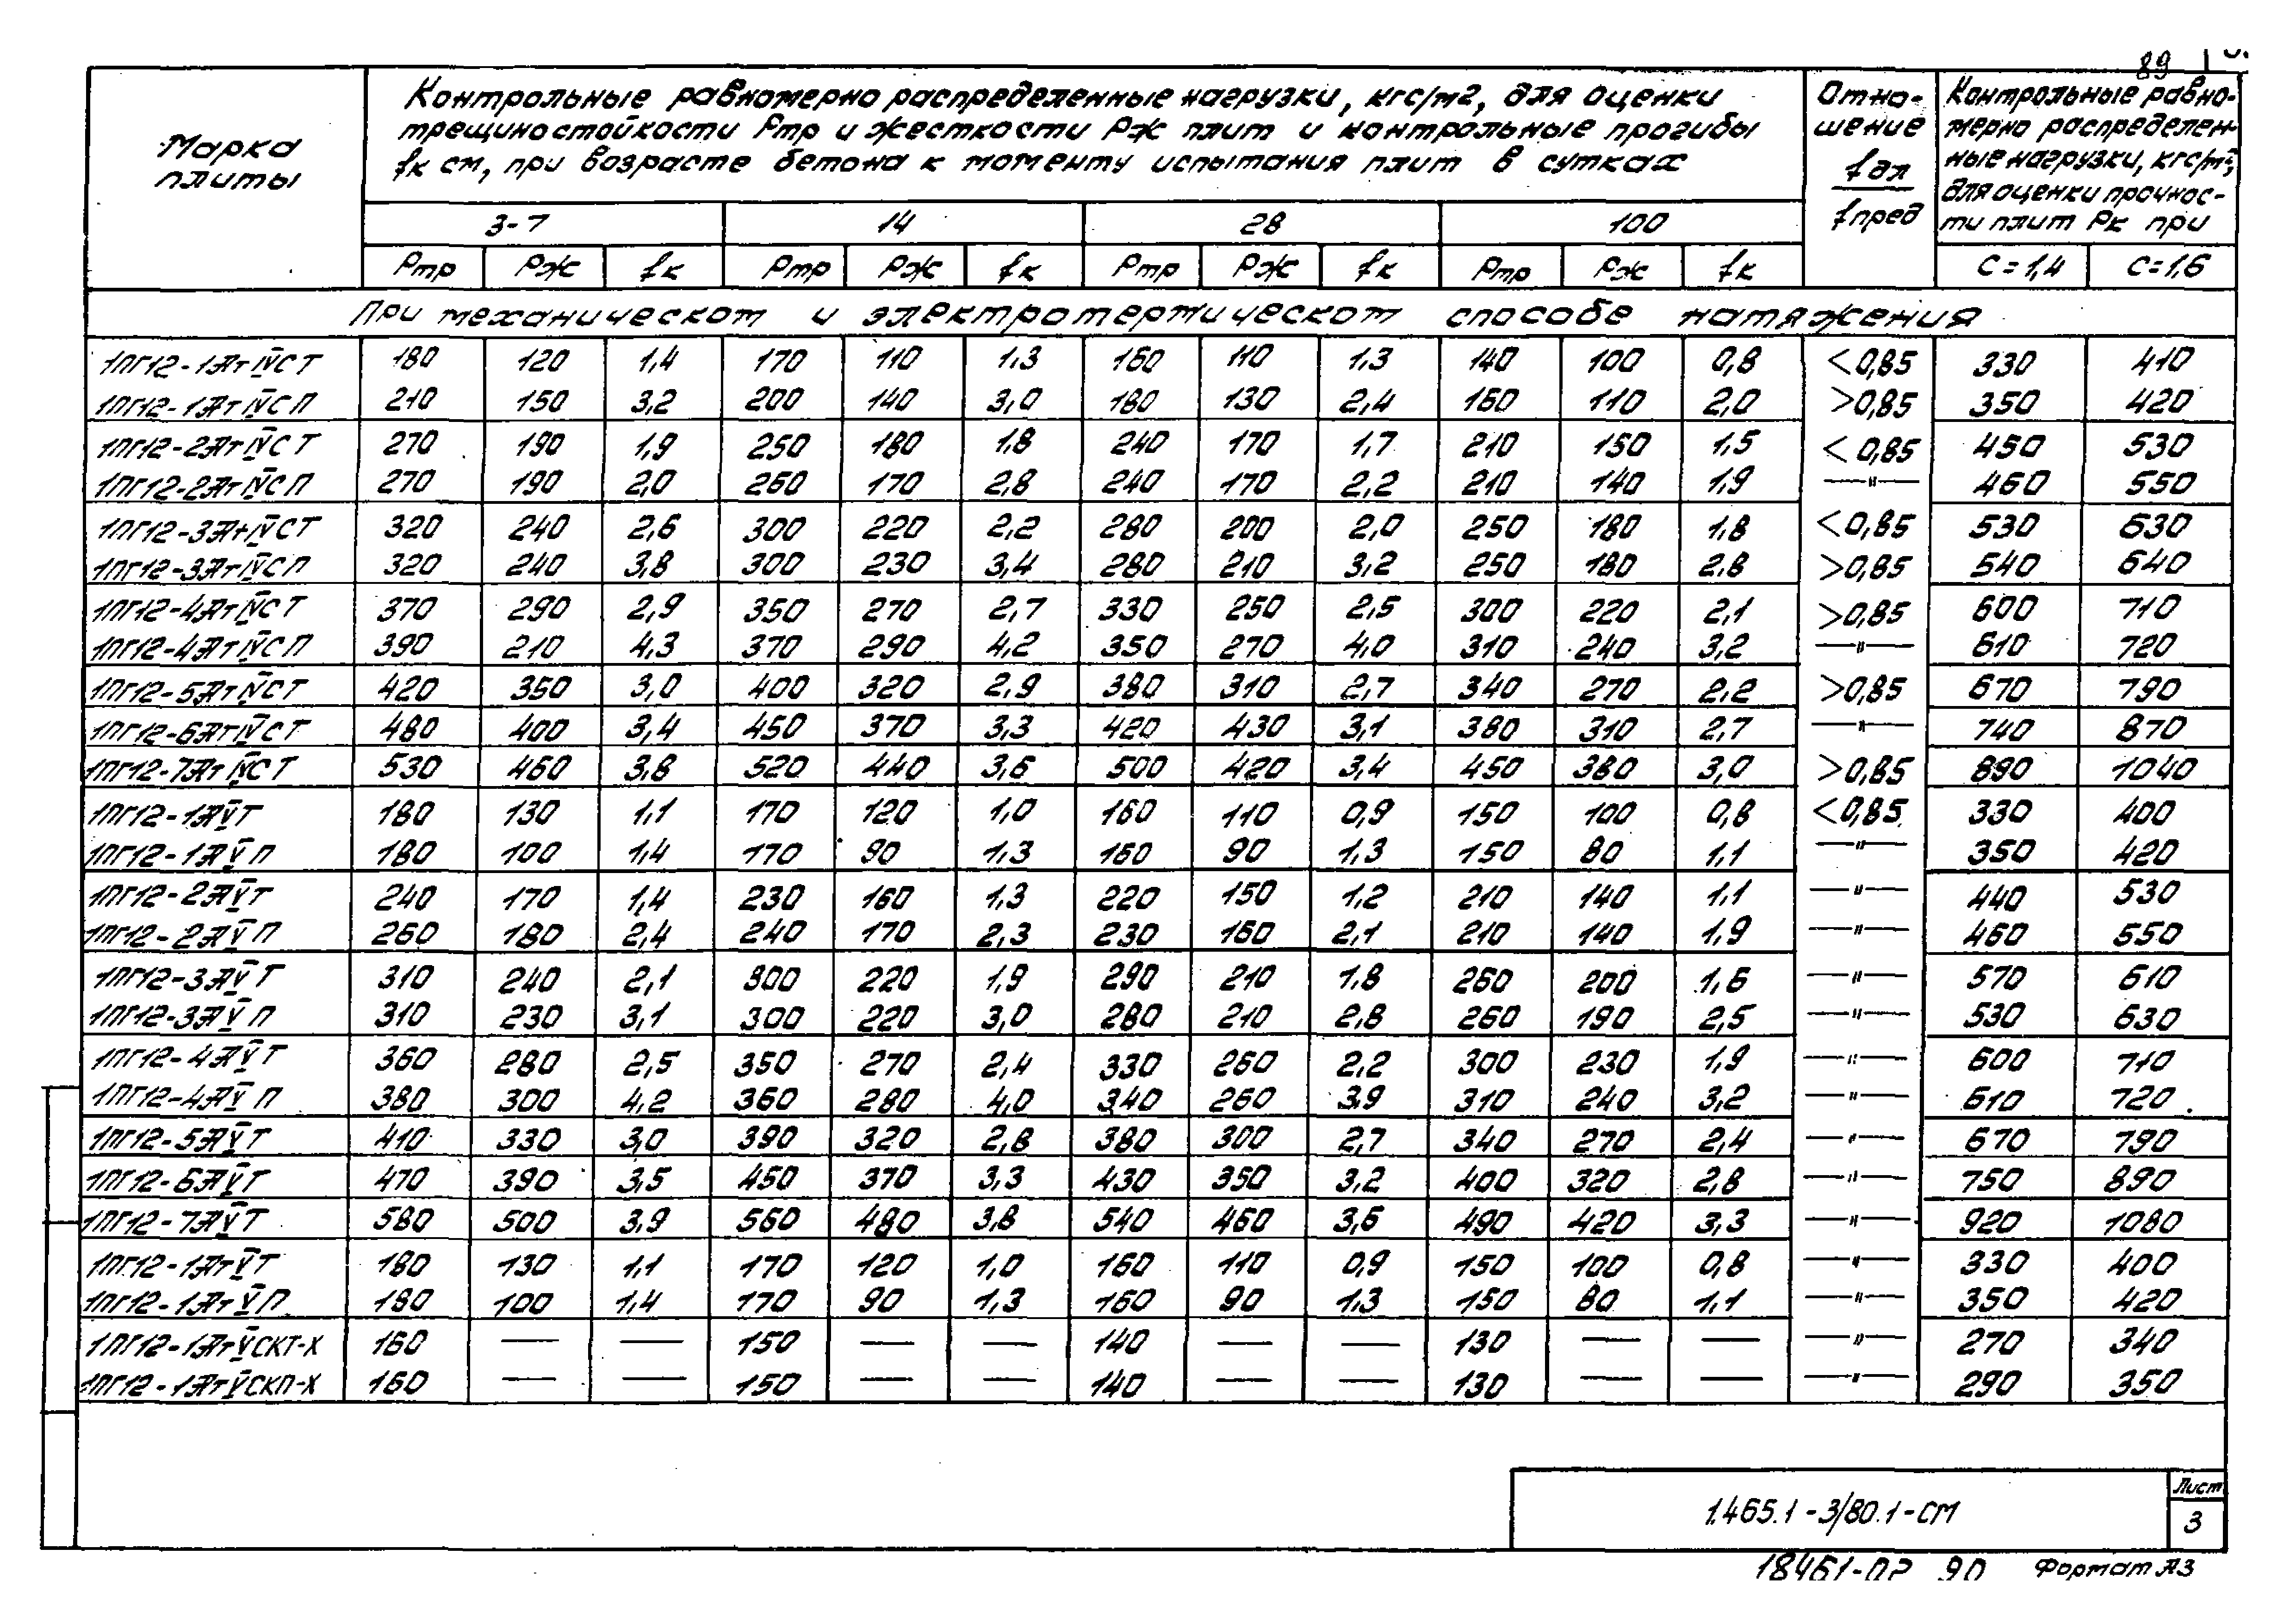 89
Контрольные равномерно распределенные нагрузки, кгс/м2, для оценки
трещиностойкости Ртр и жесткости Рж плит и контрольные прогибы
fк см, при возрасте бетона к моменту испытания плит в сутках
Марка
плиты
Отно-
шение
fдл
fпред
Контрольные равно-
мерно распределен-
ные нагрузки, кгс/м2,
для оценки прочнос-
ти плит Рк при
3-7 14 28 100
Ртр Рж fк Ртр Рж fк Ртр Рж fк Ртр Рж fк С=1,4 С=1,6
При механическом и электротермическом способе натяжения
1ПГ12-1АтIVСТ 180 120 1,4 170 110 1,3 160 110 1,3 140 100 0,8 <0,85 330 410
1ПГ12-1АтIVСП 210 150 3,2 200 140 3,0 180 130 2,4 160 110 2,0 >0,85 350 420
1ПГ12-2АтIVСТ 270 190 1,9 250 180 1,8 240 170 1,7 210 150 1,5 <0,85 450 530
1ПГ12-2АтIVСП 270 190 2,0 260 170 2,8 240 170 2,2 210 140 1,9 —"— 460 550
1ПГ12-3АтIVСТ 320 240 2,6 300 220 2,2 280 200 2,0 250 180 1,8 <0,85 530 630
1ПГ12-3АтIVСП 320 240 3,8 300 230 3,4 280 210 3,2 250 180 2,8 >0,85 540 640
1ПГ12-4АтIVСТ 370 290 2,9 350 270 2,7 330 250 2,5 300 220 2,1 >0,85 600 710
1ПГ12-4АтIVСП 390 210 4,3 370 290 4,2 350 270 4,0 310 240 3,2 —"— 610 720
1ПГ12-5АтIVСТ 420 350 3,0 400 320 2,9 380 310 2,7 340 270 2,2 >0,85 670 790
1ПГ12-6АтIVСТ 480 400 3,4 450 370 3,3 420 430 3,1 380 310 2,7 —"— 740 870
1ПГ12-7АтIVСТ 530 460 3,8 520 440 3,6 500 420 3,4 450 380 3,0 >0,85 890 1040
1ПГ12-1АVТ 180 130 1,1 170 120 1,0 160 110 0,9 150 100 0,8 <0,85 330 400
1ПГ12-1АVП 180 100 1,4 170 90 1,3 160 90 1,3 150 80 1,1 —"— 350 420
1ПГ12-2АVТ 240 170 1,4 230 160 1,3 220 150 1,2 210 140 1,1 —"— 440 530
1ПГ12-2АVП 260 180 2,4 240 170 2,3 230 160 2,1 210 140 1,9 —"— 460 550
1ПГ12-3АVТ 310 240 2,1 300 220 1,9 290 210 1,8 260 200 1,6 —"— 570 610
1ПГ12-3АVП 310 230 3,1 300 220 3,0 280 210 2,8 260 190 2,5 —"— 530 630
1ПГ12-4АVТ 360 280 2,5 350 270 2,4 330 260 2,2 300 230 1,9 —"— 600 710
1ПГ12-4АVП 380 300 4,2 360 280 4,0 340 260 3,9 310 240 3,2 —"— 610 720
1ПГ12-5АVТ 410 330 3,0 390 320 2,8 380 300 2,7 340 270 2,4 —"— 670 790
1ПГ12-6АVТ 470 390 3,5 450 370 3,3 430 350 3,2 400 320 2,8 —"— 750 890
1ПГ12-7АVТ 580 500 3,9 560 480 3,8 540 460 3,6 490 420 3,3 —"— 920 1080
1ПГ12-1АтVТ 180 130 1,1 170 120 1,0 160 110 0,9 150 100 0,8 —"— 330 400
1ПГ12-1АтVП 180 100 1,4 170 90 1,3 160 90 1,3 150 80 1,1 —"— 350 420
1ПГ12-1АтVСКТ-Х 160 — — 150 — — 140 — — 130 — — —"— 270 340
1ПГ12-1АтVСКП-Х 160 — — 150 — — 140 — — 130 — — —"— 290 350
1.465.1-3/80.1-СМ
Лист
3
18461-02 90 Формат А3